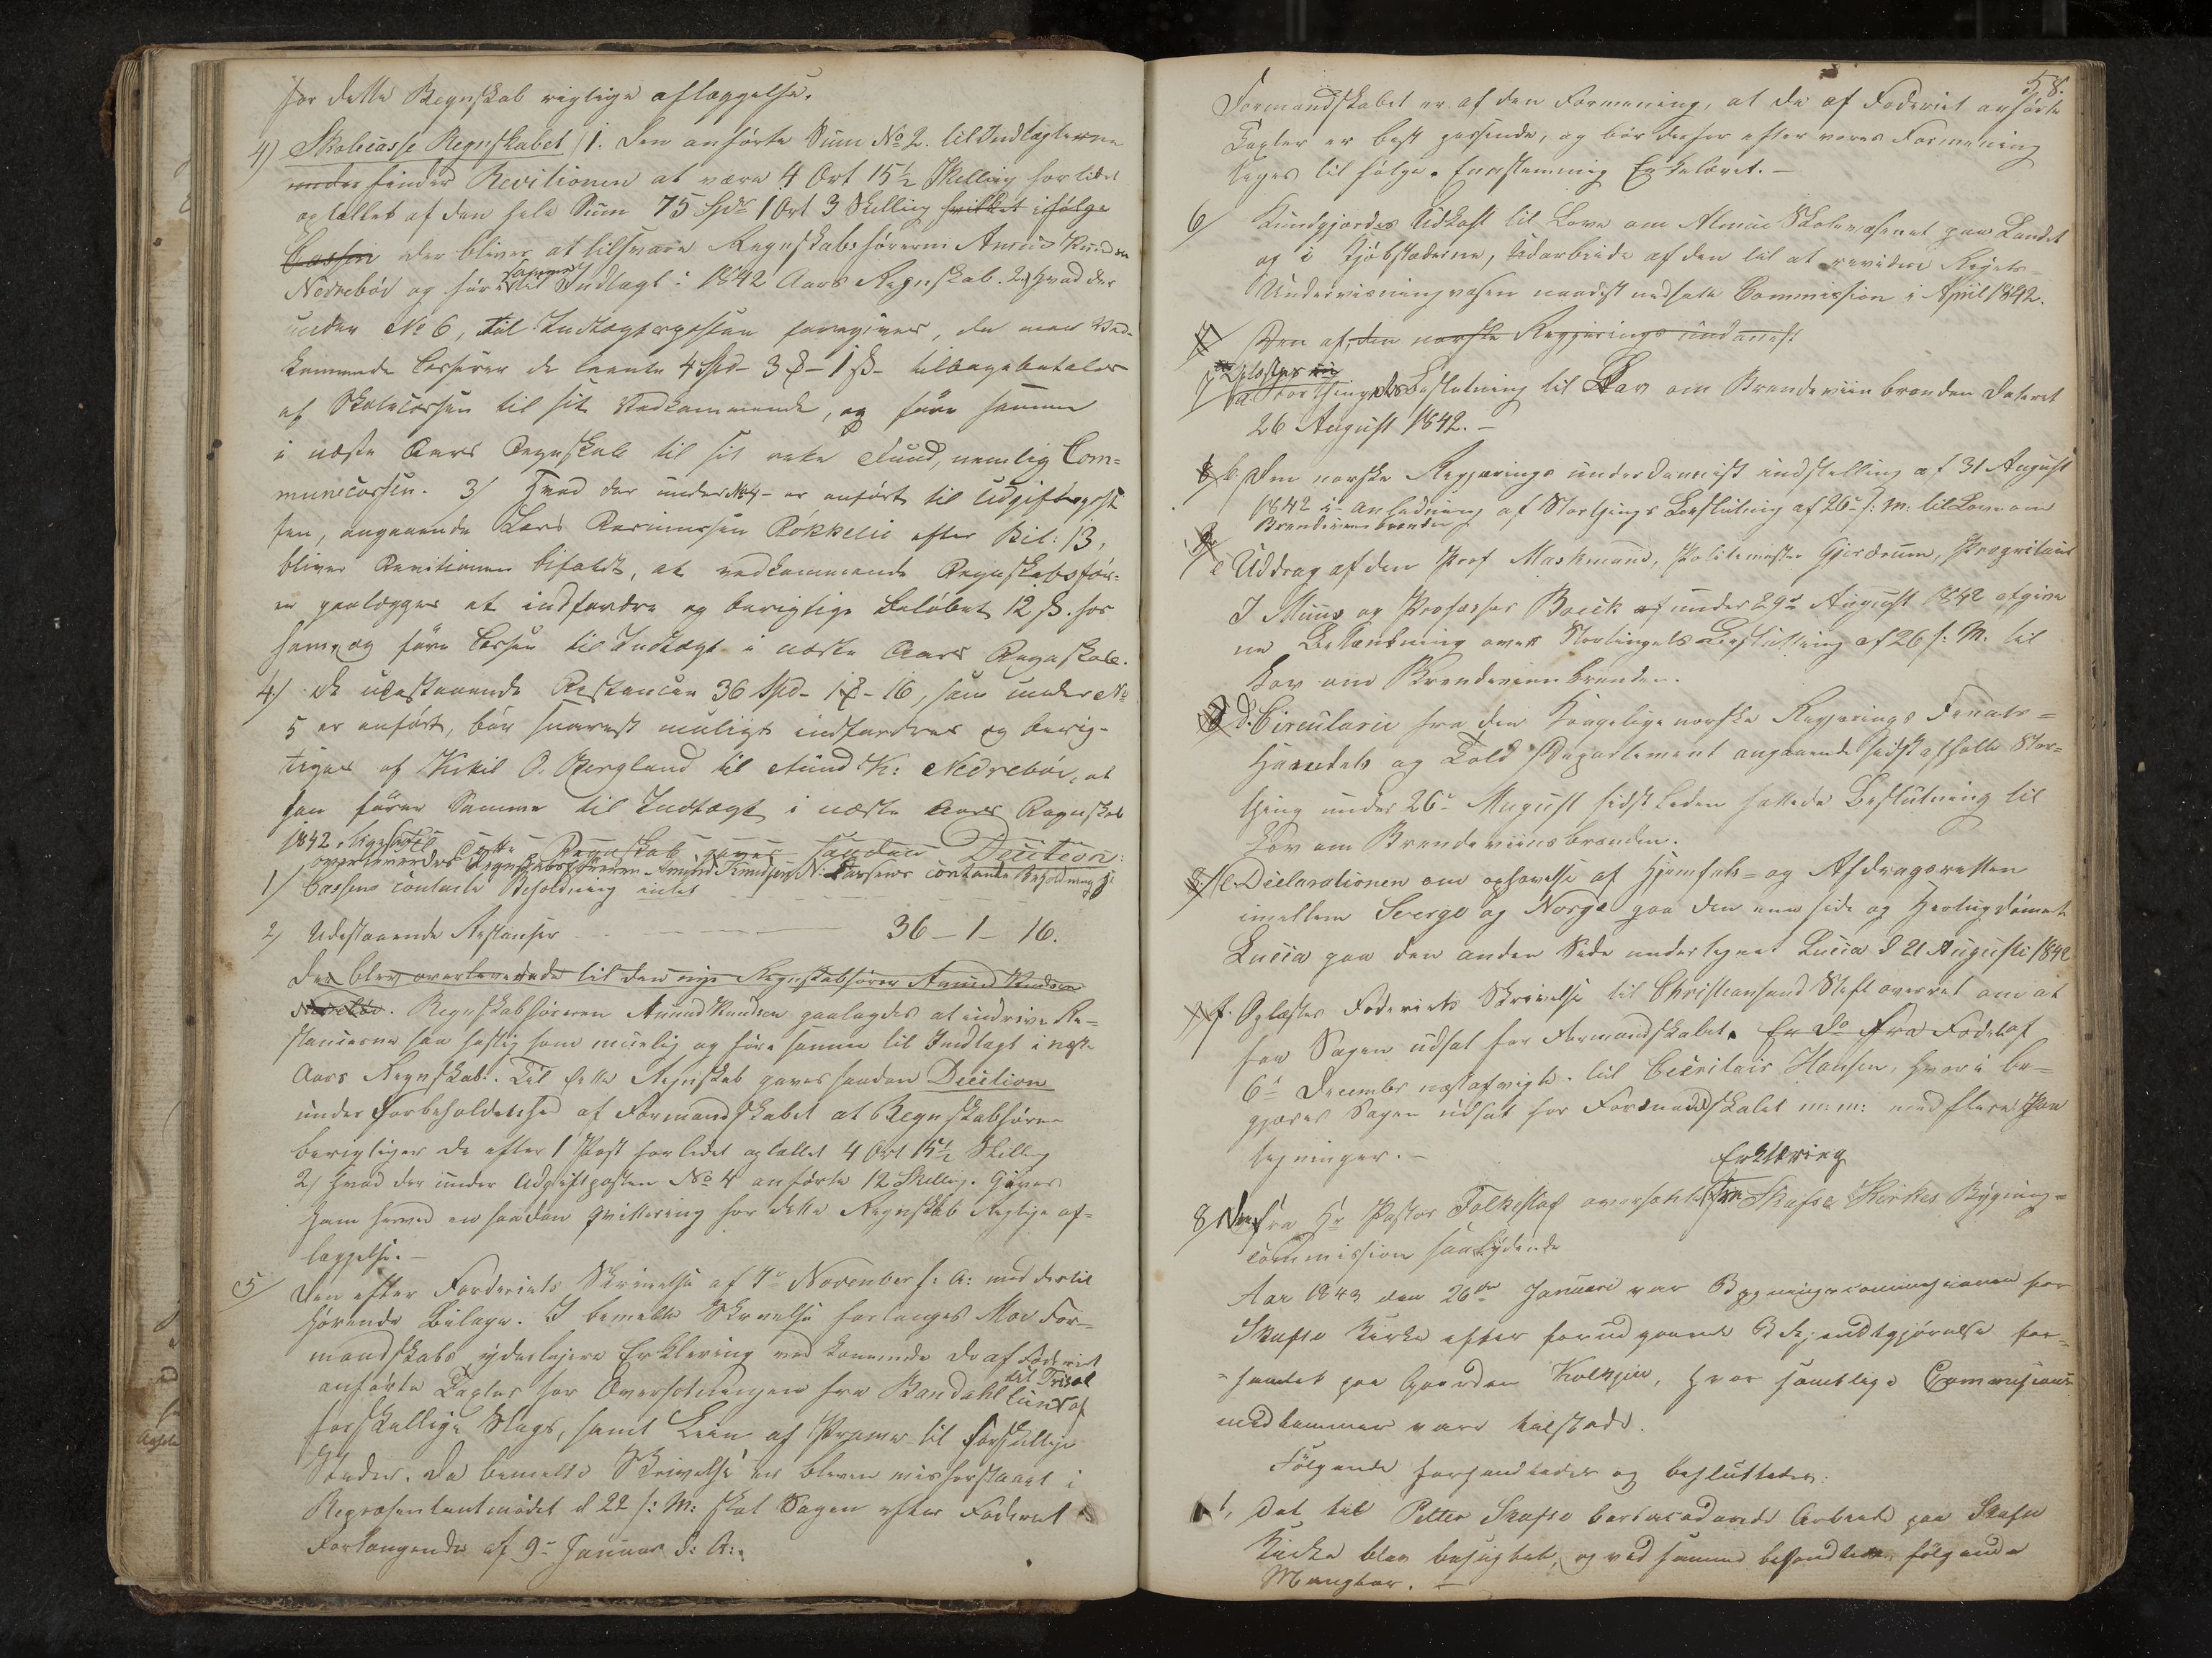 for dette Regnskab rigtige aflæggelse.
4) Skolecasse Regnskabet /1. Den anførte Sum No 2. til Indtægterne
under finder Revitionen at være 4 Ort 15½ Skilling for lidet
optallet af den hele Sum 75 Spdr 1 Ort 3 Skilling hvilket ifølge
Cassen der bliver at tilsvare Regnskabsføreren Amund Knudsen
Nedrebøe og føre samme til Indtægt i 1842 Aars Regnskab. 2) Hvad der
under No 6, til Indtægtsposten foregives, da maa Ved-
kommende Casserer de laante 4 Spd - 3 - 1 s - tilbagebetales
af Skolecassen til sit Vedkommende, og føre samme
i næste Aars Regnskab til sit rette Fund, nemlig Com=
munecassen. 3/ Hvad der under No 4 - er anført til Udgiftspost
ten, angaaende Lars Rasmussen Røkkelie efter Bil: 13,
bliver Revitionen bifaldt, at vedkommende Regnskabsfør-
er paalægges at indfordre og berigtige Beløbet 12 s. hos
ham og føre Cassen til Indtægt i næste Aars Regnskab.
4) De udestaaende Restancer 36 Spd - 1 - 16, som under No
5 er anført, bør snarest muligt indfordres og berig-
tiges af Kitil O. Bergland til Amund K: Nedrebøe, at
han fører Samme til Indtægt i næste Aars Regnskab
1842, ligesaa Dette Regnskab gaves saadan Decition:
overleveredes Regnskabsføreren Amund Knudsen N: Cassens contante Beholdning
1/ Cassens contante Beholdning intet
2/ Udestaaende Restanser 36 - 1 - 16.
Der blev overleverede til den nye Regnskabsfører Amund Knudsen
Nedrebøe. Regnskabsføreren Amund Knudsen paalagdes at indrive Re=
stancerne saa hastig som muelig og føre samme til Indtægt i næste
Aars Regnskab. Til dette Regnskab gaves saadan Decition
under Forbeholdenhed af Formandskabet at Regnskabsføren
berigtiger de efter 1 Post for lidet optallet 4 Ort 15½ Skilling
2/ Hvad der under Udgiftposten No 4 anførte 12 Skilling. Gives
ham herved en saadan Qvittering for dette Regnskab Rigtige af=
læggelse. -
5/ Den efter Forderiets Skrivelse af 7de November f: A: med dertil
hørende Bilage. I bemelte Skrivelse forlanges Moe For=
mandskabs yderligere Erklering ved kommende de af Foderiet
anførte Taxter for Oversætningen fra Bandahl til Trisæt
lund af
forskiellige Slags, samt Leien af Pramer til forskiellige
Stæder. Da bemelte Skrivelse er bleven misforstaaet i
Repræsentantmødet d 22 f: M: skal Sagen efter Foderiet
Forlangende af 9de Januar d: A:.
58.
Formandskabet er af den Formening, at de af Foderiet anførte
Taxter er best passende, og bør derfor efter vores Formening
tages til følge. Enstemmig Erkleret. -
6/ Kundgjordes Udkast til Love om Almue Skolevæsenet paa Landet
og i Kjøbstæderne, udarbeide af den til at revidere Rigets=
Undervisningvæsen naadigst nedsatte Commission i April 1842.
7/ Den af, den norske Regjerings underdanigst
7/ Oplæstes
a Storthingets Beslutning til Lov om Brændeviinbrænden dateret
26 August 1842. -
8/ b/ Den norske Regjerings underdannigst indstilling af 31 August
1842 i Anledning af Storthings Beslutning af 26de f: M: til Love om
Brændeviinsbrænden
c Uddrag af den Prof Maschmand, Politimester Gjerdrum, Proprietair
J Muus og Professor Boeck af under 29de August 1842 afgivne
ne Betænkning over Stortingets Beslutning af 26 f: M: til
Lov om Brændeviinbrænden.
d. Circulaire fra den Kongelige norske Regjerings Finants=
Handels og Told Departement angaaende sidst afholte Stor=
thing under 26de August sidst leden fattede Beslutning til
Lov om Brændeviinsbrænden.
e. Declarationen om ophævelse af Hjemfals- og Afdragsretten
imellem Sverge og Norge paa den ene side og Hertugdømet
Lucca paa den anden Side undertegnet Lucca d 21 Augusti 1842
f. Oplæstes Foderiets Skrivelse til Christiansand Stiftoverret om at
faa Sagen udsat for Formandskabet. Er do fra Foderiet af
6te December næstafvigte. til Secritair Hansen, hvori be=
gjæres Sagen udsat for Formandskabet m: m: med flere Paa
tegninger. -
Erklæring
8/ Den fra Hr Pastor Folkestad oversente fra Skafse Kirkes Bygning=
commission saalydende
Aar 1843 den 26de Januari var Bygningscommissionen for
Skafse Kirke efter forudgaaende Bekjendtgjørelse for=
samlet paa Gaarden Kolkjen, hvor samtlige Commissions
medlemmer vare tilstede.
Følgende forhandledes og besluttedes:
1, Det til Petter Skafse bortacorderede Arbeide paa Skafse
Kirke blev besigtet, og ved samme befandtes følgende
Mangler. -